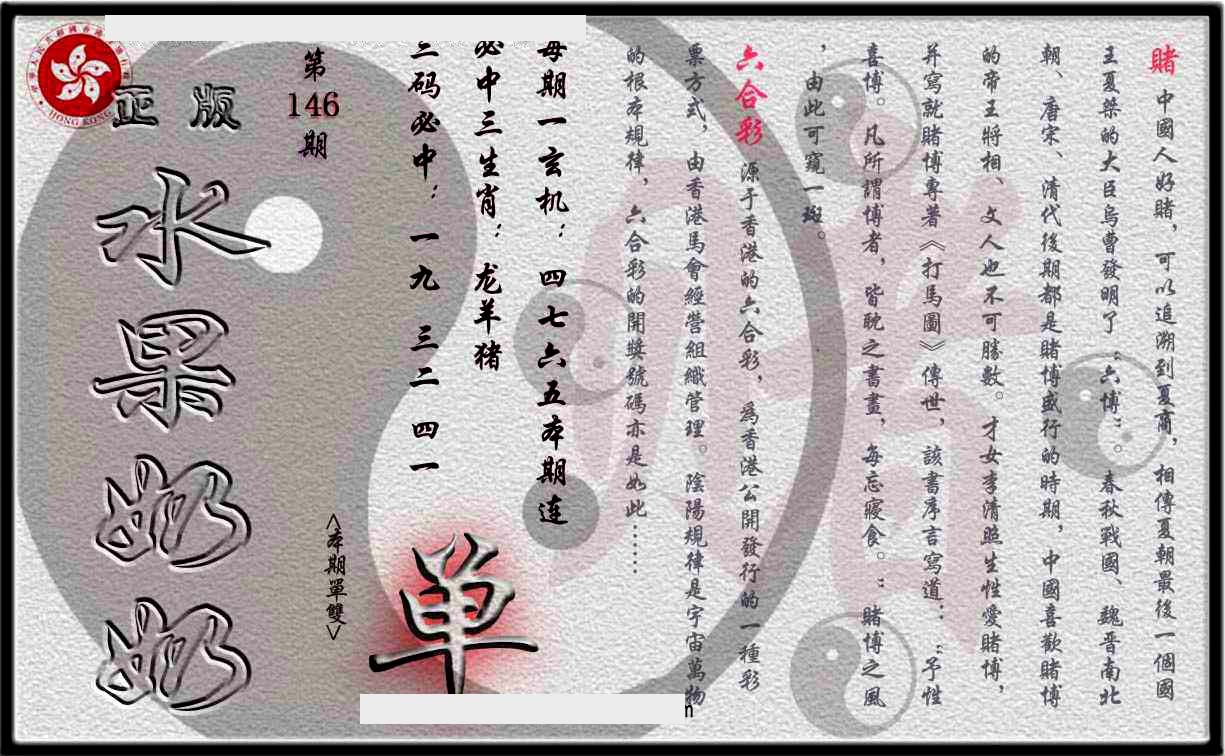 賭 中國人好賭，可以追溯到夏商，相傳夏朝最後一個國
王夏桀的大臣烏曹發明了“六博”。春秋戰國、魏晋南北
朝、唐宋、清代後期都是賭博盛行的時期，中國喜歡賭博
的帝王將相、文人也不可勝數。才女李清照生性愛賭博，
并寫就賭博專著《打馬圖》傳世，該書序言寫道：“予性
喜博。凡所謂博者，皆耽之書畫，每忘寢食。”賭博之風
，由此可窺一斑。
六合彩 源于香港的六合彩，為香港公開發行的一種彩
票方式，由香港馬會經營組織管理。陰陽規律是宇宙萬物
的根本規律，六合彩的開獎號碼亦是如此……
每期一玄机：四七六五本期连
必中三生肖：龙羊猪
三码必中：一九 三二 四一
单
<本期單雙>
第
146
期
正版
水果奶奶
HONG KONG
n